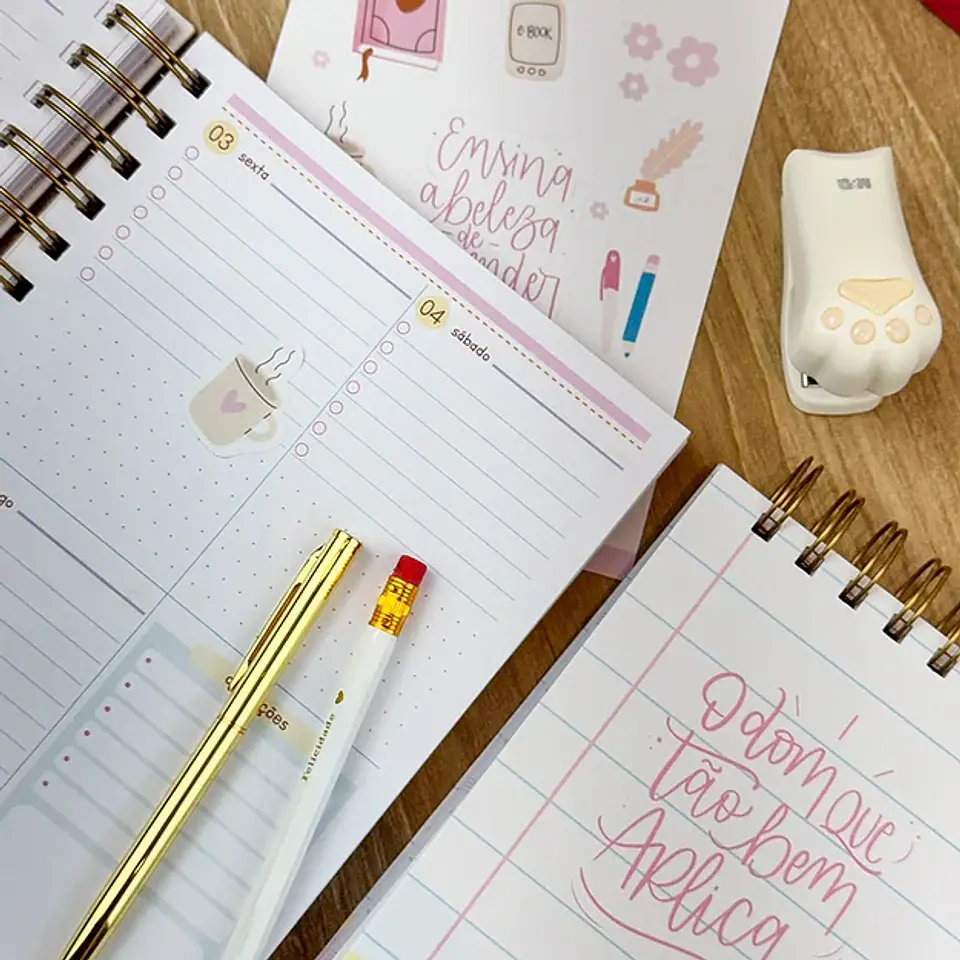 e-BOOK
Ensina
a beleza
de
03
sexta
04
sábado
go
ções
felicidade
O dom que
tão bem
Aplica